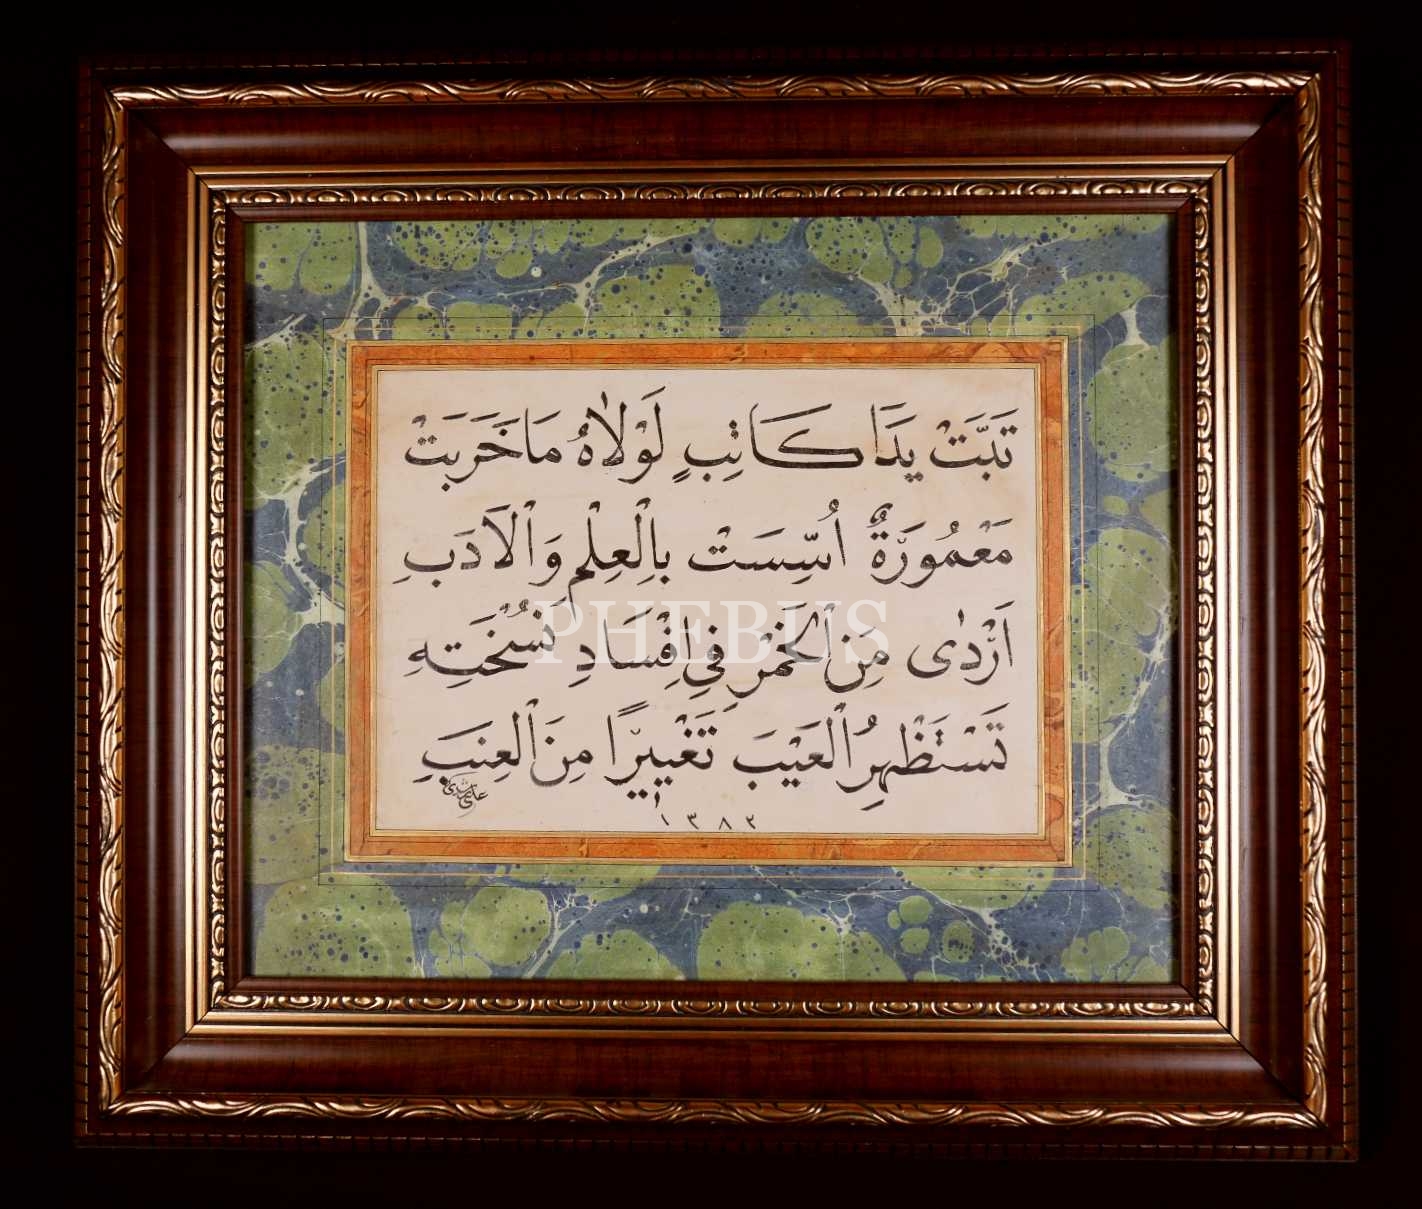 تَبَّتْ يَدَا كَاتِبٍ لَوْلَاهُ مَا خَرَبَتْ
مَعْمُورَةٌ اُسِّسَتْ بِالْعِلْمِ وَالْاَدَبِ
اَرْدٰى مِنَ الْخَمْرِ فِي اِفْسَادِ نُسْخَتِهِ
تَسْتَظْهِرُ الْعَيْبَ تَغْيِيرًا مِنَ الْعِنَبِ
١٣٨٣
PHEBUS